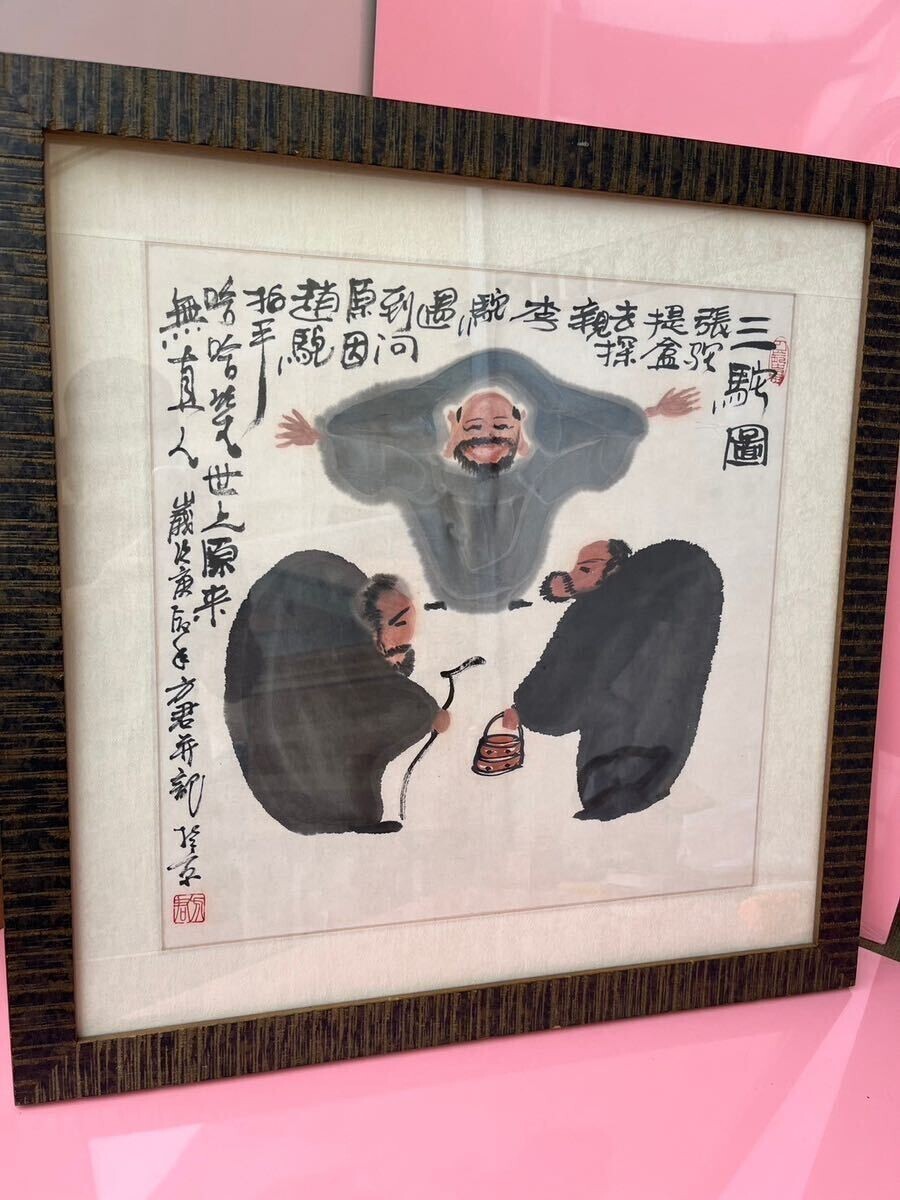 三駝圖
張駝
提盒
去探
親
李
駝
過
到问
原因
趙駝
拍手
哈哈笑世上原来
無直人
歲次庚辰年方君并記於京